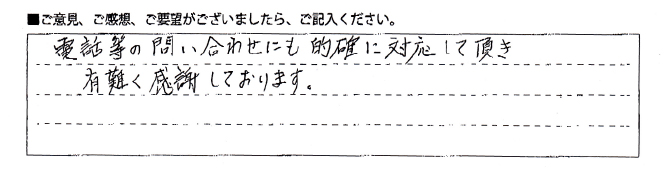 ■ご意見、ご感想、ご要望がございましたら、ご記入ください。
電話等の問い合わせにも的確に対応して頂き
有難く感謝しております。